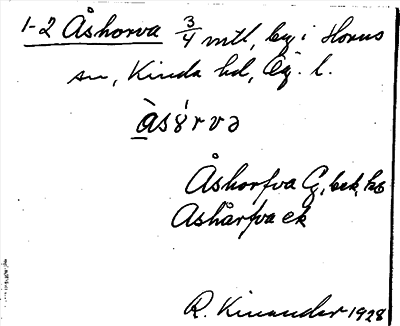 1-2 Åshorva 3/4 mtl, by i Horns
sn, Kinda hd, Ög. l.
àsórvə
Åshorfva G, bek, ks
Ashårfva ek
R. Kinander 1928